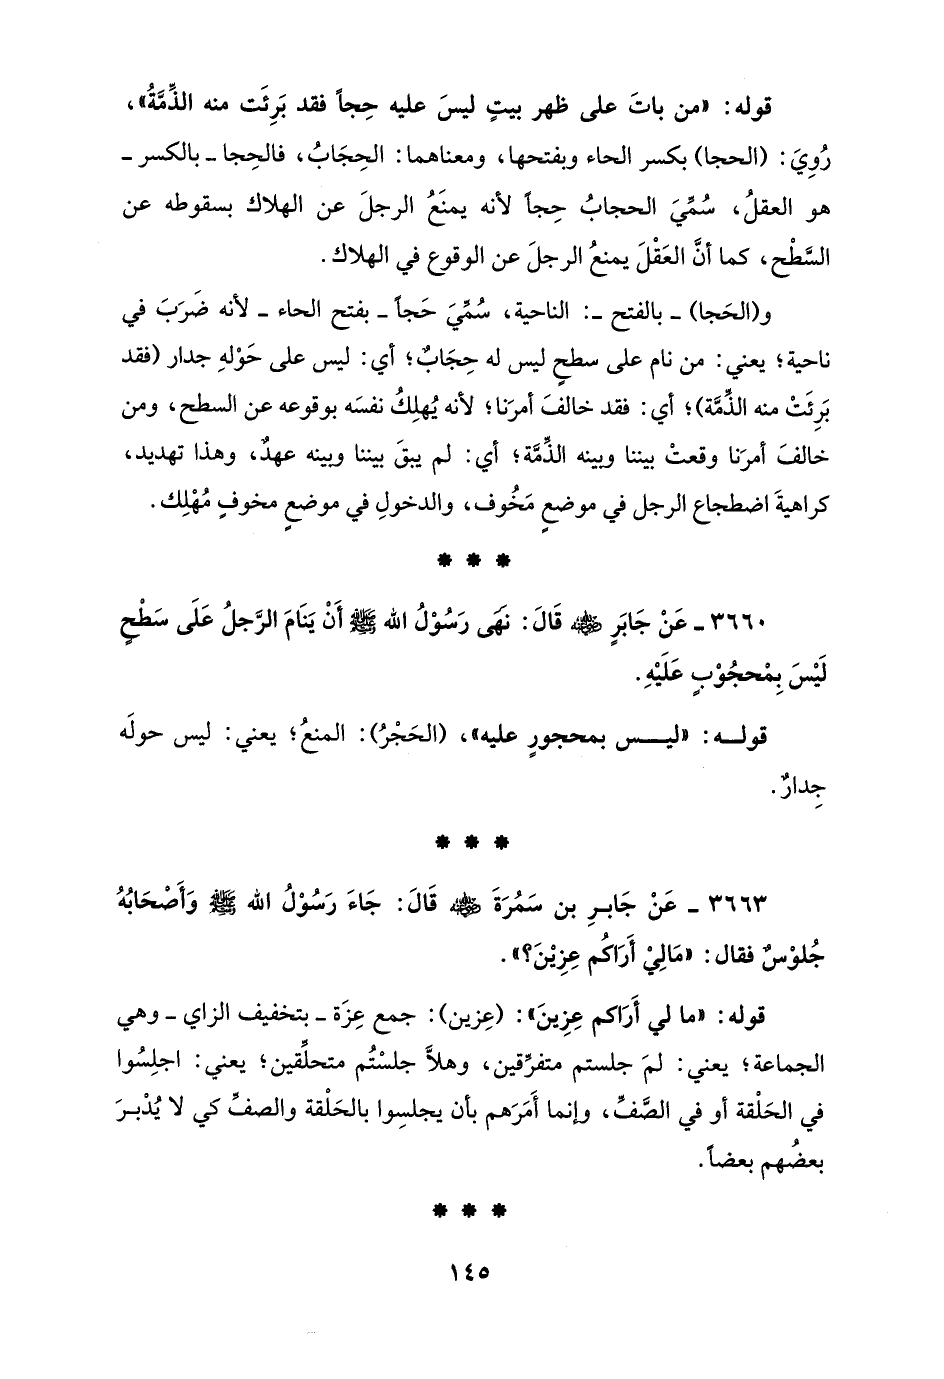 قوله: «من باتَ على ظهر بيتٍ ليسَ عليه حِجاً فقد بَرِئَت منه الذِّمَّةُ»،
رُوِيَ: (الحجا) بكسر الحاء وبفتحها، ومعناهما: الحِجَابُ، فالحِجا ـ بالكسر ـ
هو العقلُ، سُمِّيَ الحجابُ حِجاً لأنه يمنَعُ الرجلَ عن الهلاك بسقوطه عن
السَّطْح، كما أنَّ العَقْلَ يمنعُ الرجلَ عن الوقوع في الهلاك.
و(الحَجا) ـ بالفتح ـ: الناحية، سُمِّيَ حَجاً ـ بفتح الحاء ـ لأنه ضَرَبَ في
ناحية؛ يعني: من نام على سطحٍ ليس له حِجابٌ؛ أي: ليس على حَوْلهِ جدار (فقد
بَرِئَتْ منه الذِّمَّة)؛ أي: فقد خالفَ أمرَنا؛ لأنه يُهلِكُ نفسَه بوقوعه عن السطح، ومن
خالفَ أمرَنا وقعتْ بيننا وبينه الذِّمَّة؛ أي: لم يبقَ بيننا وبينه عهدٌ، وهذا تهديد،
كراهيةَ اضطجاع الرجل في موضعٍ مَخُوف، والدخولِ في موضعٍ مخوفٍ مُهْلِك.
* * *
٣٦٦٠ ـ عَنْ جَابَرٍ ﵁ قَالَ: نَهَى رَسُوْلُ الله ﷺ أَنْ يَنَامَ الرَّجلُ عَلَى سَطْحٍ
لَيْسَ بِمْحجُوْبٍ عَلَيْهِ.
قولـه: «ليـس بمحجورٍ عليه»، (الحَجْرُ): المنعُ؛ يعني: ليس حولَه
جِدارٌ.
* * *
٣٦٦٣ ـ عَنْ جَابـرِ بن سَمُرَةَ ﵁ قَالَ: جَاءَ رَسُوْلُ الله ﷺ وَأَصْحَابُهُ
جُلوْسٌ فقال: «مَالِيْ أَرَاكُم عِزِيْنَ؟».
قوله: «ما لي أَرَاكم عِزِينَ»: (عِزين): جمع عِزَة ـ بتخفيف الزاي ـ وهي
الجماعة؛ يعني: لمَ جلستم متفرِّقين، وهلاَّ جلسْتُم متحلِّقين؛ يعني: اجلِسُوا
في الحَلْقة أو في الصَّفِّ، وإنما أَمَرَهم بأن يجلسِوا بالحَلْقة والصفِّ كي لا يُدْبـرَ
بعضُهم بعضاً.
* * *
١٤٥